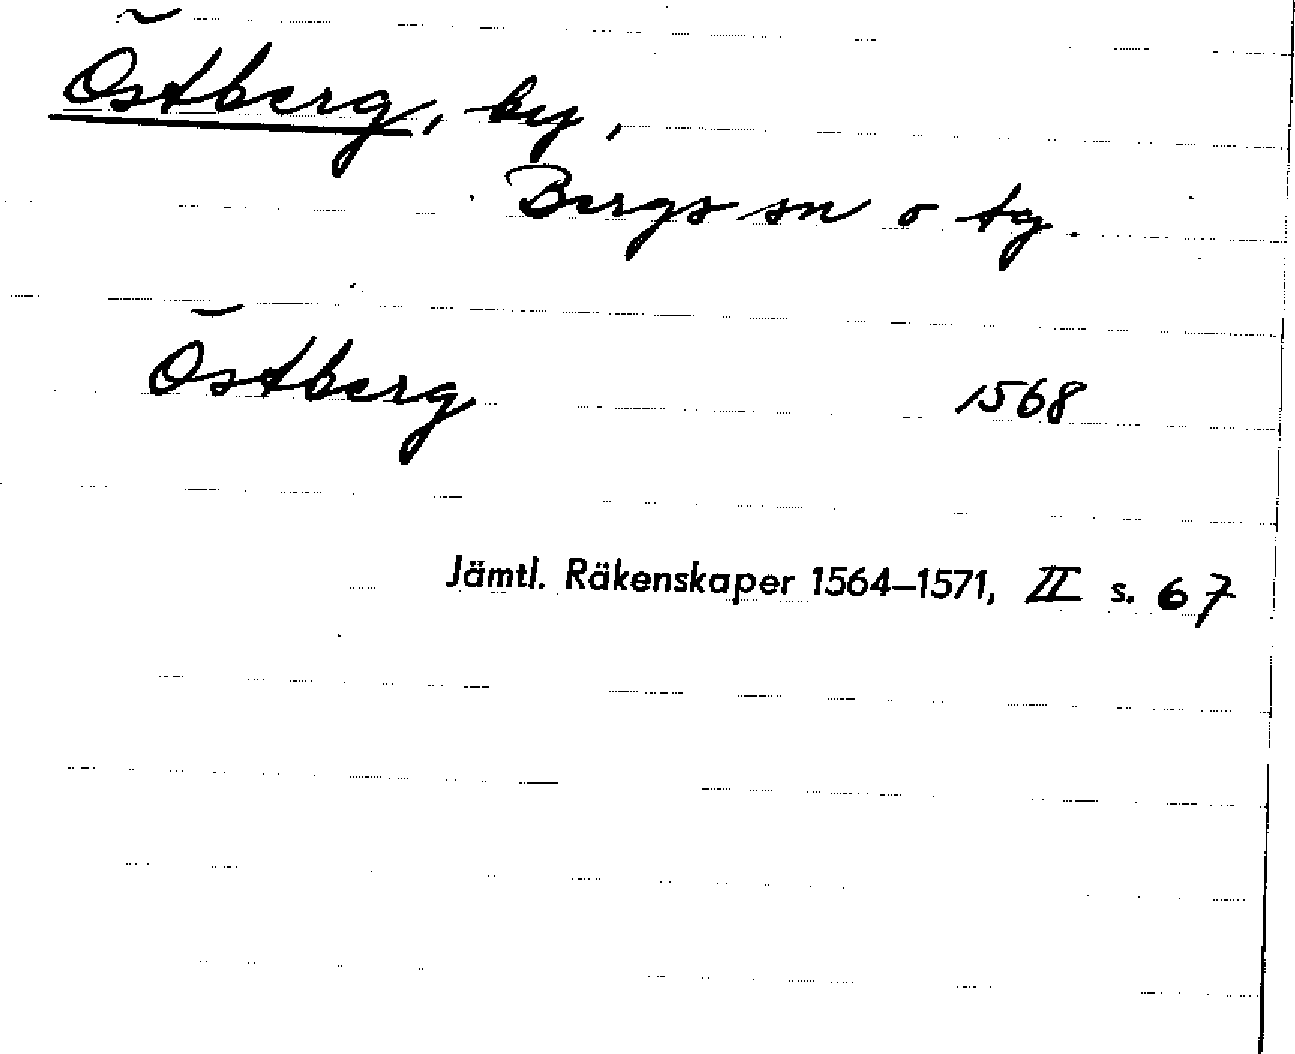 Östberg, by,
Bergs sn o tg.
Östberg 1568
Jämtl. Räkenskaper 1564–1571, II s. 67